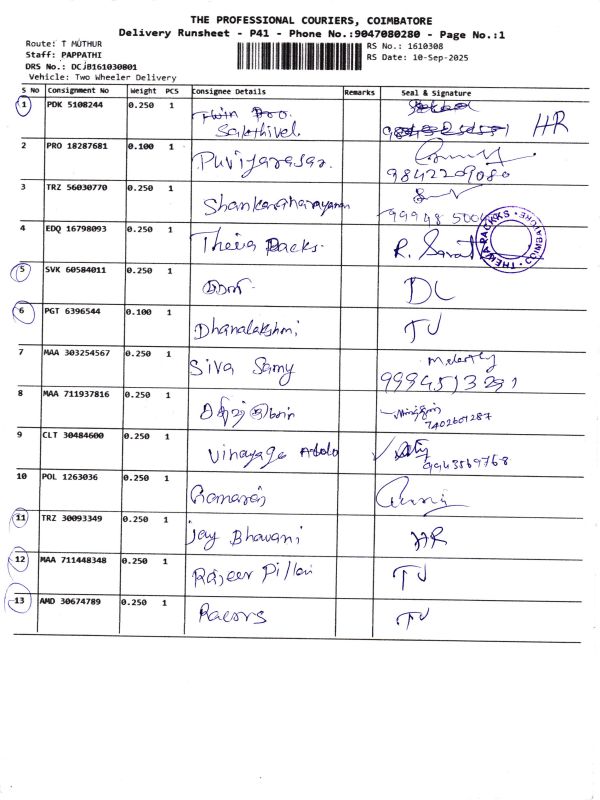 THE PROFESSIONAL COURIERS, COIMBATORE
Delivery Runsheet - P41 - Phone No.:9047080280 - Page No.:1
Route: T MUTHUR
Staff: PAPPATHI
DRS No.: DCJB161030801
Vehicle: Two Wheeler Delivery
RS No.: 1610308
RS Date: 10-Sep-2025
S No Consignment No Weight PCS Consignee Details Remarks Seal & Signature
1 PDK 5108244 0.250 1 Sakthivel HR
2 PRO 18287681 0.100 1 Puvijarasar. 9842209080
3 TRZ 56030770 0.250 1 Shankaranarayanan
4 EDQ 16798093 0.250 1 Theia Packs.
5 SVK 60584011 0.250 1 DL
6 PGT 6396544 0.100 1 Dhanalakshmi TU
7 MAA 303254567 0.250 1 Siva Samy 9994513291
8 MAA 711937816 0.250 1 7402601287
9 CLT 30484600 0.250 1 Vinayaga 9943569768
10 POL 1263036 0.250 1 Ramaraj
11 TRZ 30093349 0.250 1 Jay Bhavani HR
12 MAA 711448348 0.250 1 Rajeev Pillai TU
13 AMD 30674789 0.250 1 Racers TU